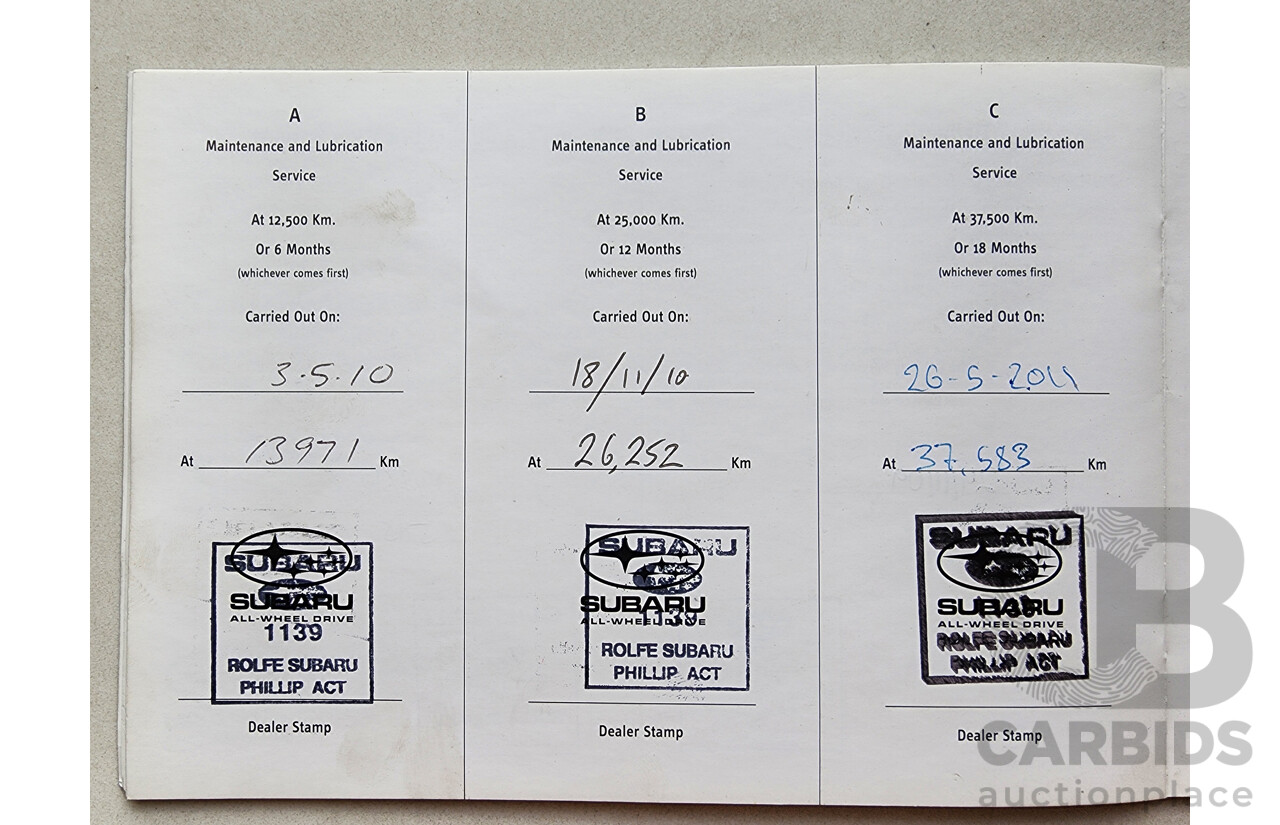 A
Maintenance and Lubrication
Service
At 12,500 Km.
Or 6 Months
(whichever comes first)
Carried Out On:
3.5.10
At 13971 Km
SUBARU
SUBARU
ALL-WHEEL DRIVE
1139
ROLFE SUBARU
PHILLIP ACT
Dealer Stamp
B
Maintenance and Lubrication
Service
At 25,000 Km.
Or 12 Months
(whichever comes first)
Carried Out On:
18/11/10
At 26,252 Km
SUBARU
SUBARU
ALL-WHEEL DRIVE
1139
ROLFE SUBARU
PHILLIP ACT
Dealer Stamp
C
Maintenance and Lubrication
Service
At 37,500 Km.
Or 18 Months
(whichever comes first)
Carried Out On:
26-5-2011
At 37,583 Km
SUBARU
SUBARU
ALL-WHEEL DRIVE
ROLFE SUBARU
PHILLIP ACT
Dealer Stamp
B
CARBIDS
auctionplace